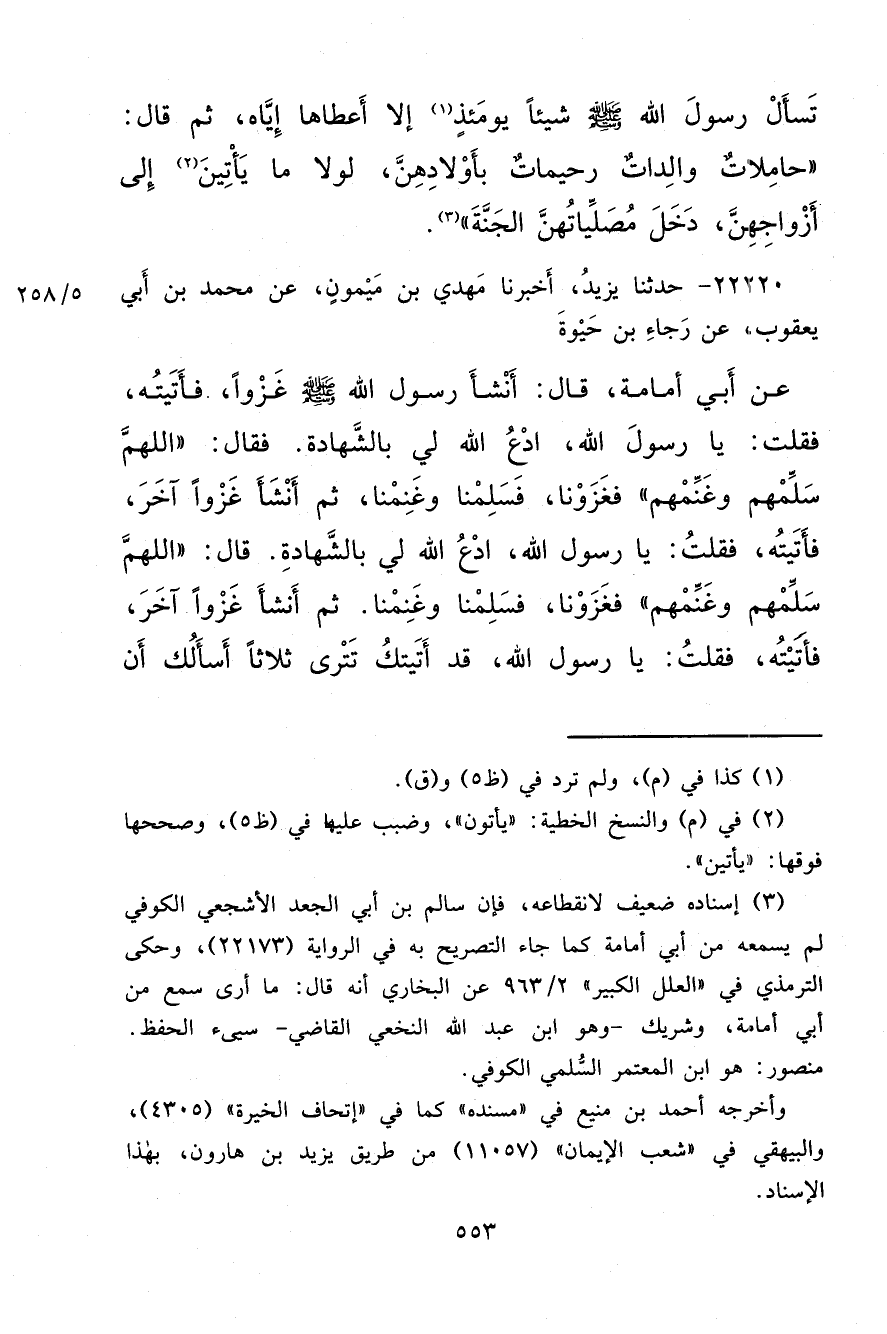 تَسأَلْ رسولَ الله ﷺ شيئاً يومَئذٍ(١) إلا أَعطاها إيَّاه، ثم قال:
«حامِلاتٌ والِداتٌ رحيماتٌ بأَوْلادِهِنَّ، لولا ما يَأْتِينَ(٢) إلى
أَزْواجِهِنَّ، دَخَلَ مُصَلِّياتُهنَّ الجَنَّةَ»(٣).
٢٢٢٢٠- حدثنا يزيدُ، أَخبرنا مَهدي بن مَيْمونٍ، عن محمد بن أَبي
٢٥٨/٥
يعقوب، عن رَجاءِ بن حَيْوةَ
عن أَبي أمامة، قال: أَنْشأَ رسول الله ﷺ غَزْواً، فأَتَيتُه،
فقلت: يا رسولَ الله، ادْعُ الله لي بالشَّهادة. فقال: «اللهمَّ
سَلِّمْهم وغَنِّمْهم» فغَزَوْنا، فَسَلِمْنا وغَنِمْنا، ثم أَنْشَأَ غَزْواً آخَرَ،
فأَتَيتُه، فقلتُ: يا رسول الله، ادْعُ الله لي بالشَّهادةِ. قال: «اللهمَّ
سَلِّمْهم وغَنِّمْهم» فغَزَوْنا، فسَلِمْنا وغَنِمْنا. ثم أَنشأَ غَزْواً آخَرَ،
فأَتَيْتُه، فقلتُ: يا رسول الله، قد أَتَيتكُ تَتْرى ثلاثاً أَسأَلُك أَن
(١) كذا في (م)، ولم ترد في (ظ٥) و(ق).
(٢) في (م) والنسخ الخطية: «يأتون»، وضبب عليها في (ظ٥)، وصححها
فوقها: «يأتين».
(٣) إسناده ضعيف لانقطاعه، فإن سالم بن أبي الجعد الأشجعي الكوفي
لم يسمعه من أبي أمامة كما جاء التصريح به في الرواية (٢٢١٧٣)، وحكى
الترمذي في «العلل الكبير» ٩٦٣/٢ عن البخاري أنه قال: ما أرى سمع من
أبي أمامة، وشريك -وهو ابن عبد الله النخعي القاضي- سيىء الحفظ.
منصور: هو ابن المعتمر السُّلمي الكوفي.
وأخرجه أحمد بن منيع في «مسنده» كما في «إتحاف الخيرة» (٤٣٠٥)،
والبيهقي في «شعب الإيمان» (١١٠٥٧) من طريق يزيد بن هارون، بهٰذا
الإسناد.
٥٥٣